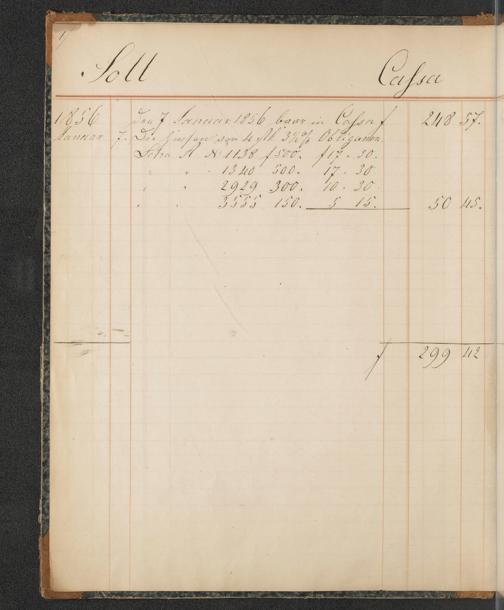 1
Soll Cassa
1856 Den 7 Januar 1856 baar in Cassa f 248 57.
Januar 7. Die Zinsen von 4 Stk 3½% Obligationen
Litra A No 1138 f 500. f 17. 30.
" " 1340 500. 17. 30.
" " 2929 300. 10. 30.
" " 3555 150. 5 15. 50 45.
f 299 42